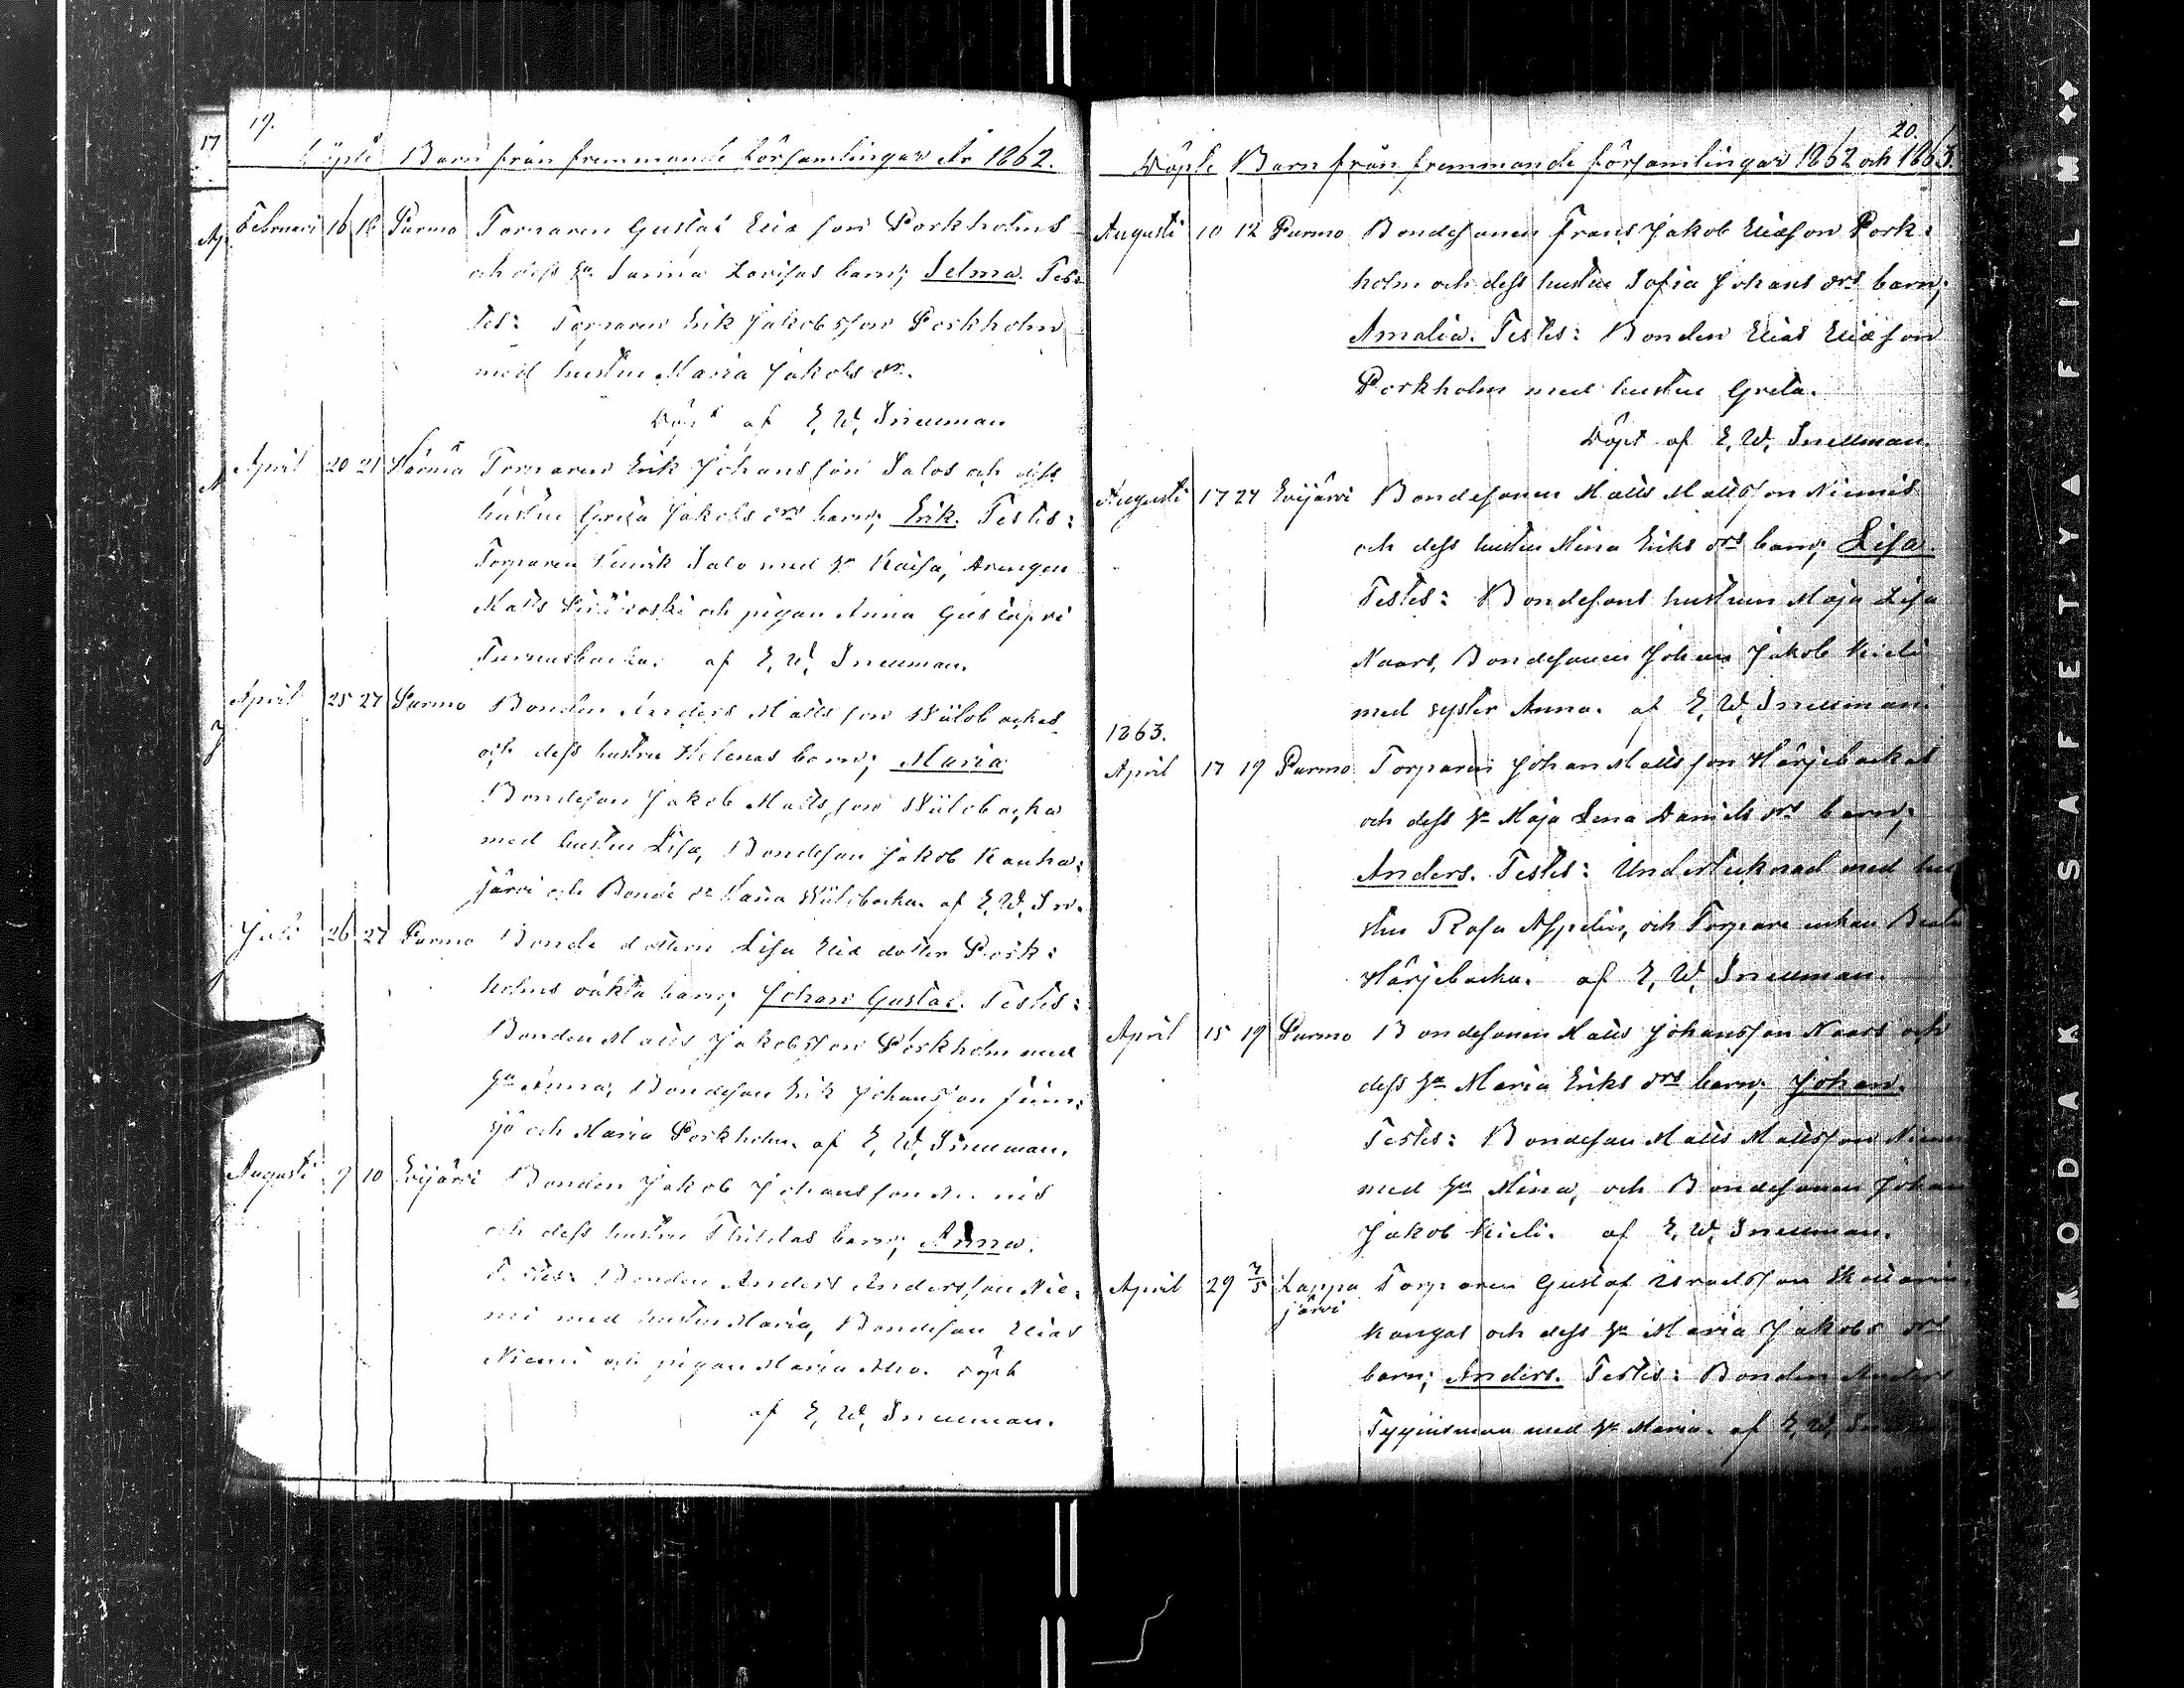 17
19.
Döpte Barn från fremmande Församlingar År 1862.
Februari 16 16 Purmo Torparen Gustaf Eliæ son Porkholms
och dess hu Sanna Lovisas barn; Selma. Tes-
tes: Torparen Erik Jakobsson Porkholm
med hustru Maria Jakobs dr.
Döpt af E. W. Snellman
April 20 21 Härmä Torparen Erik Johansson Salos och dess
hustru Greta Jakobs drs barn; Erik. Testes:
Torparen Henrik Salo med hu Kaisa, Drengen
Matts och pigan Anna
af E. W. Snellman.
April 25 27 Purmo Bonden Anders Mattsson Wiilobackas
och dess hustru Helenas barn; Maria
Bondeson Jakob Mattsson Wiilobacka
med hustru Lisa, Bondeson Jakob Kauha=
järvi och Bonde dr Maria Wiilobacka. af E. W. Sn.
Juli 26 27 Purmo Bonde dottern Lisa Eliæ dotter Pork=
holms oäkta barn; Johan Gustaf. Testes:
Bonden Matts Jakobsson Porkholm med
hu Anna, Bondeson Erik Johansson
sjö och Maria Porkholm. af E. W. Snellman.
Augusti 9 10 Evijärvi Bonden Jakob Johansson
och dess hustru Thildas barn; Anna.
Testes: Bonden Anders Andersson Nie=
mi med hustru Maria, Bondeson Elias
Niemi och pigan Maria Aho. Döpt
af E. W. Snellman.
20.
Döpte Barn från fremmande församlingar 1862 och 1863.
Augusti 10 12 Purmo Bondesonen Frans Jakob Eliæson Pork=
holm och dess hustru Sofia Johans drs barn;
Amalia. Testes: Bonden Elias Eliæson
Porkholm med hustru Greta.
Döpt af E. W. Snellman.
Augusti 17 24 Evijärvi Bondesonen Matts Mattsson Niemis
och dess hustru Mina Eriks drs barn; Lisa.
Testes: Bondesons hustrun Maja Lisa
Naars, Bondesonen Johan Jakob Kieli
med syster Anna. af E. W. Snellman.
1863.
April 17 19 Purmo Torparen Johan Mattsson Härjebackas
och dess hu Maja Lena Daniels drs barn;
Anders. Testes: Undertecknad med hu
stru Rosa Appelin, och Torpare enkan Beata
Härjebacka. af E. W. Snellman.
April 15 19 Purmo Bondesonen Matts Johansson Naars och
dess hu Maria Eriks drs barn; Johan.
Testes: Bondeson Matts Mattsson Niemi
med hu Mina, och Bondesonen Johan
Jakob Kieli. af E. W. Snellman.
April 29 3/5 Lappa Torparen Gustaf
järvi
kangas och dess hu Maria Jakobs drs
barn; Anders. Testes: Bonden Anders
med hu Maria. af E. W. Snellman
KODAK SAFETY FILM